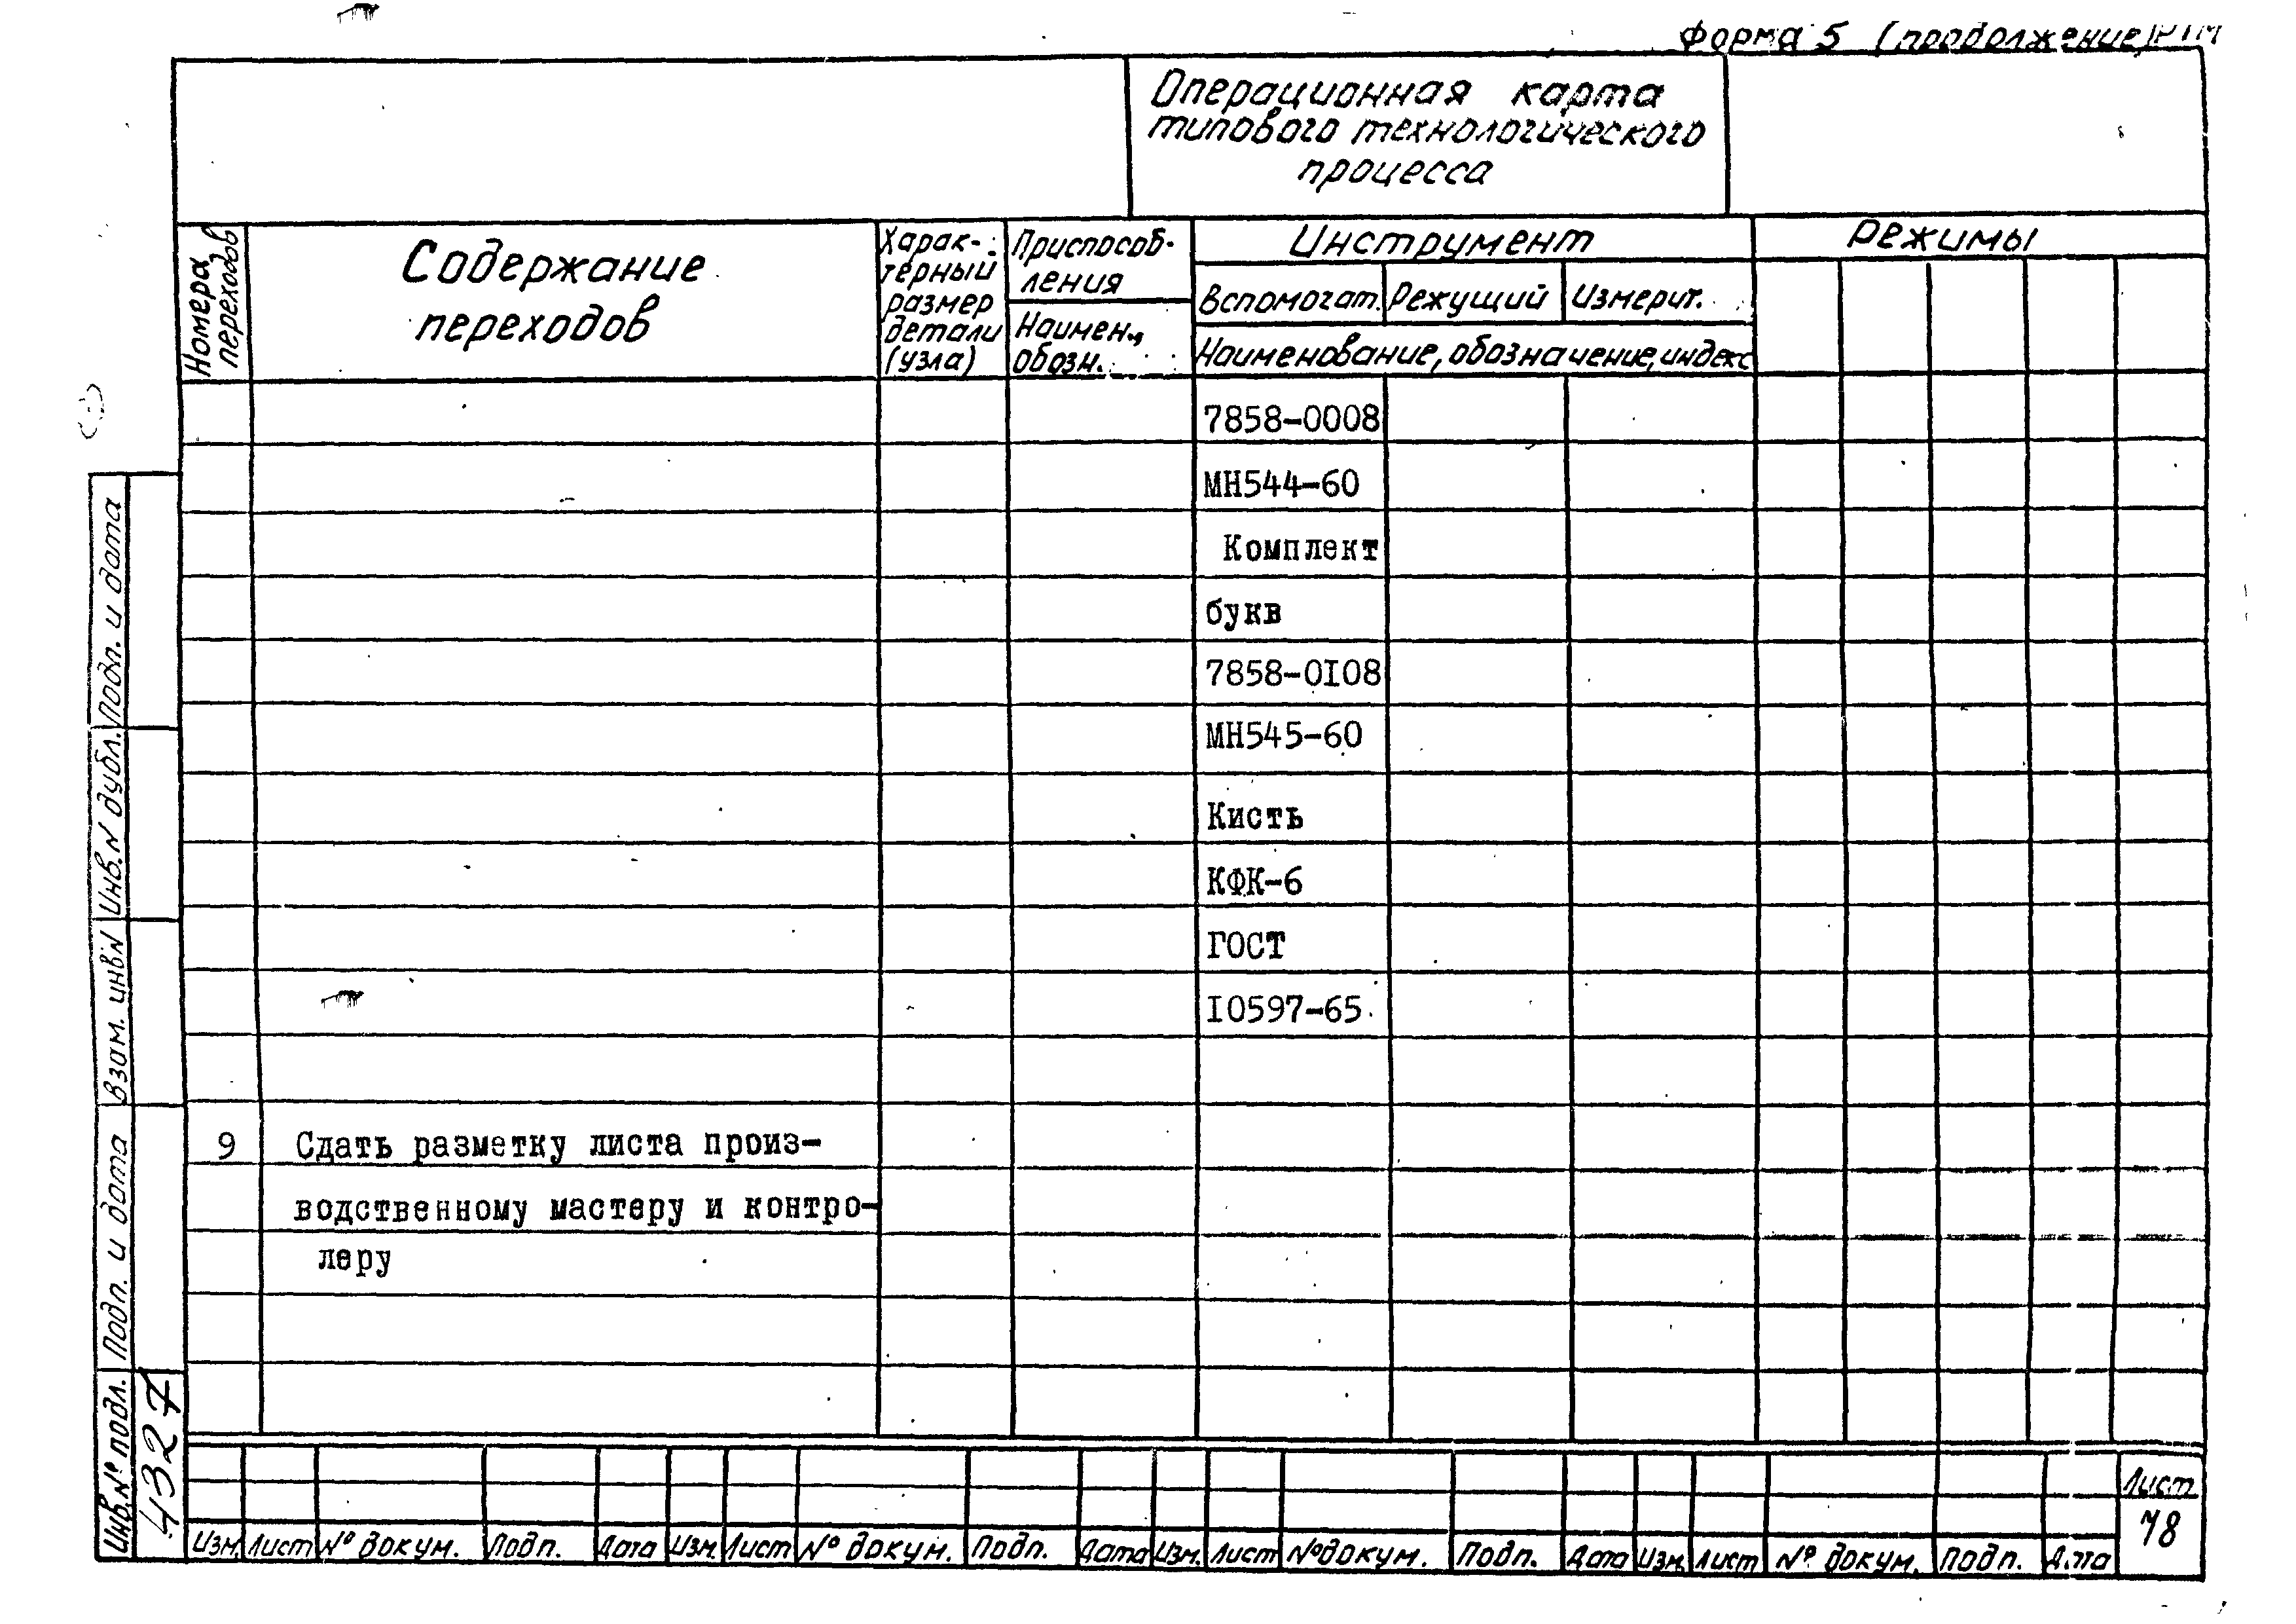 Форма 5 (продолжение) РТМ
Операционная карта
типового технологического
процесса
Номера переходов
Содержание
переходов
Харак-
терный
размер
детали
(узла)
Приспособ-
ления
Наимен.,
обозн.
Инструмент
Вспомогат. Режущий Измерит.
Наименование, обозначение, индекс
Режимы
7858-0008
МН544-60
Комплект
букв
7858-0I08
МН545-60
Кисть
КФК-6
ГОСТ
I0597-65
9 Сдать разметку листа произ-
водственному мастеру и контро-
леру
Подп. и дата
Инв.N дубл.
Взам. инв.N
Подп. и дата
Инв.№ подл.
4327
Изм. Лист № докум. Подп. Дата Изм. Лист № докум. Подп. Дата Изм. Лист № докум. Подп. Дата Изм. Лист № докум. Подп. Дата
Лист
78